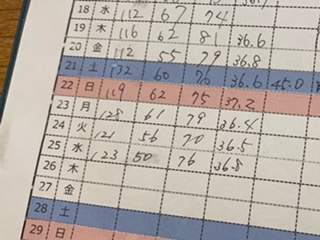 18 水 112 67 74
19 木 116 62 81 36.6
20 金 112 55 79 36.8
21 土 132 60 76 36.6 45.0
22 日 119 62 75 37.2
23 月 128 61 79 36.4
24 火 121 56 70 36.5
25 水 123 50 76 36.8
26 木
27 金
28 土
29 日